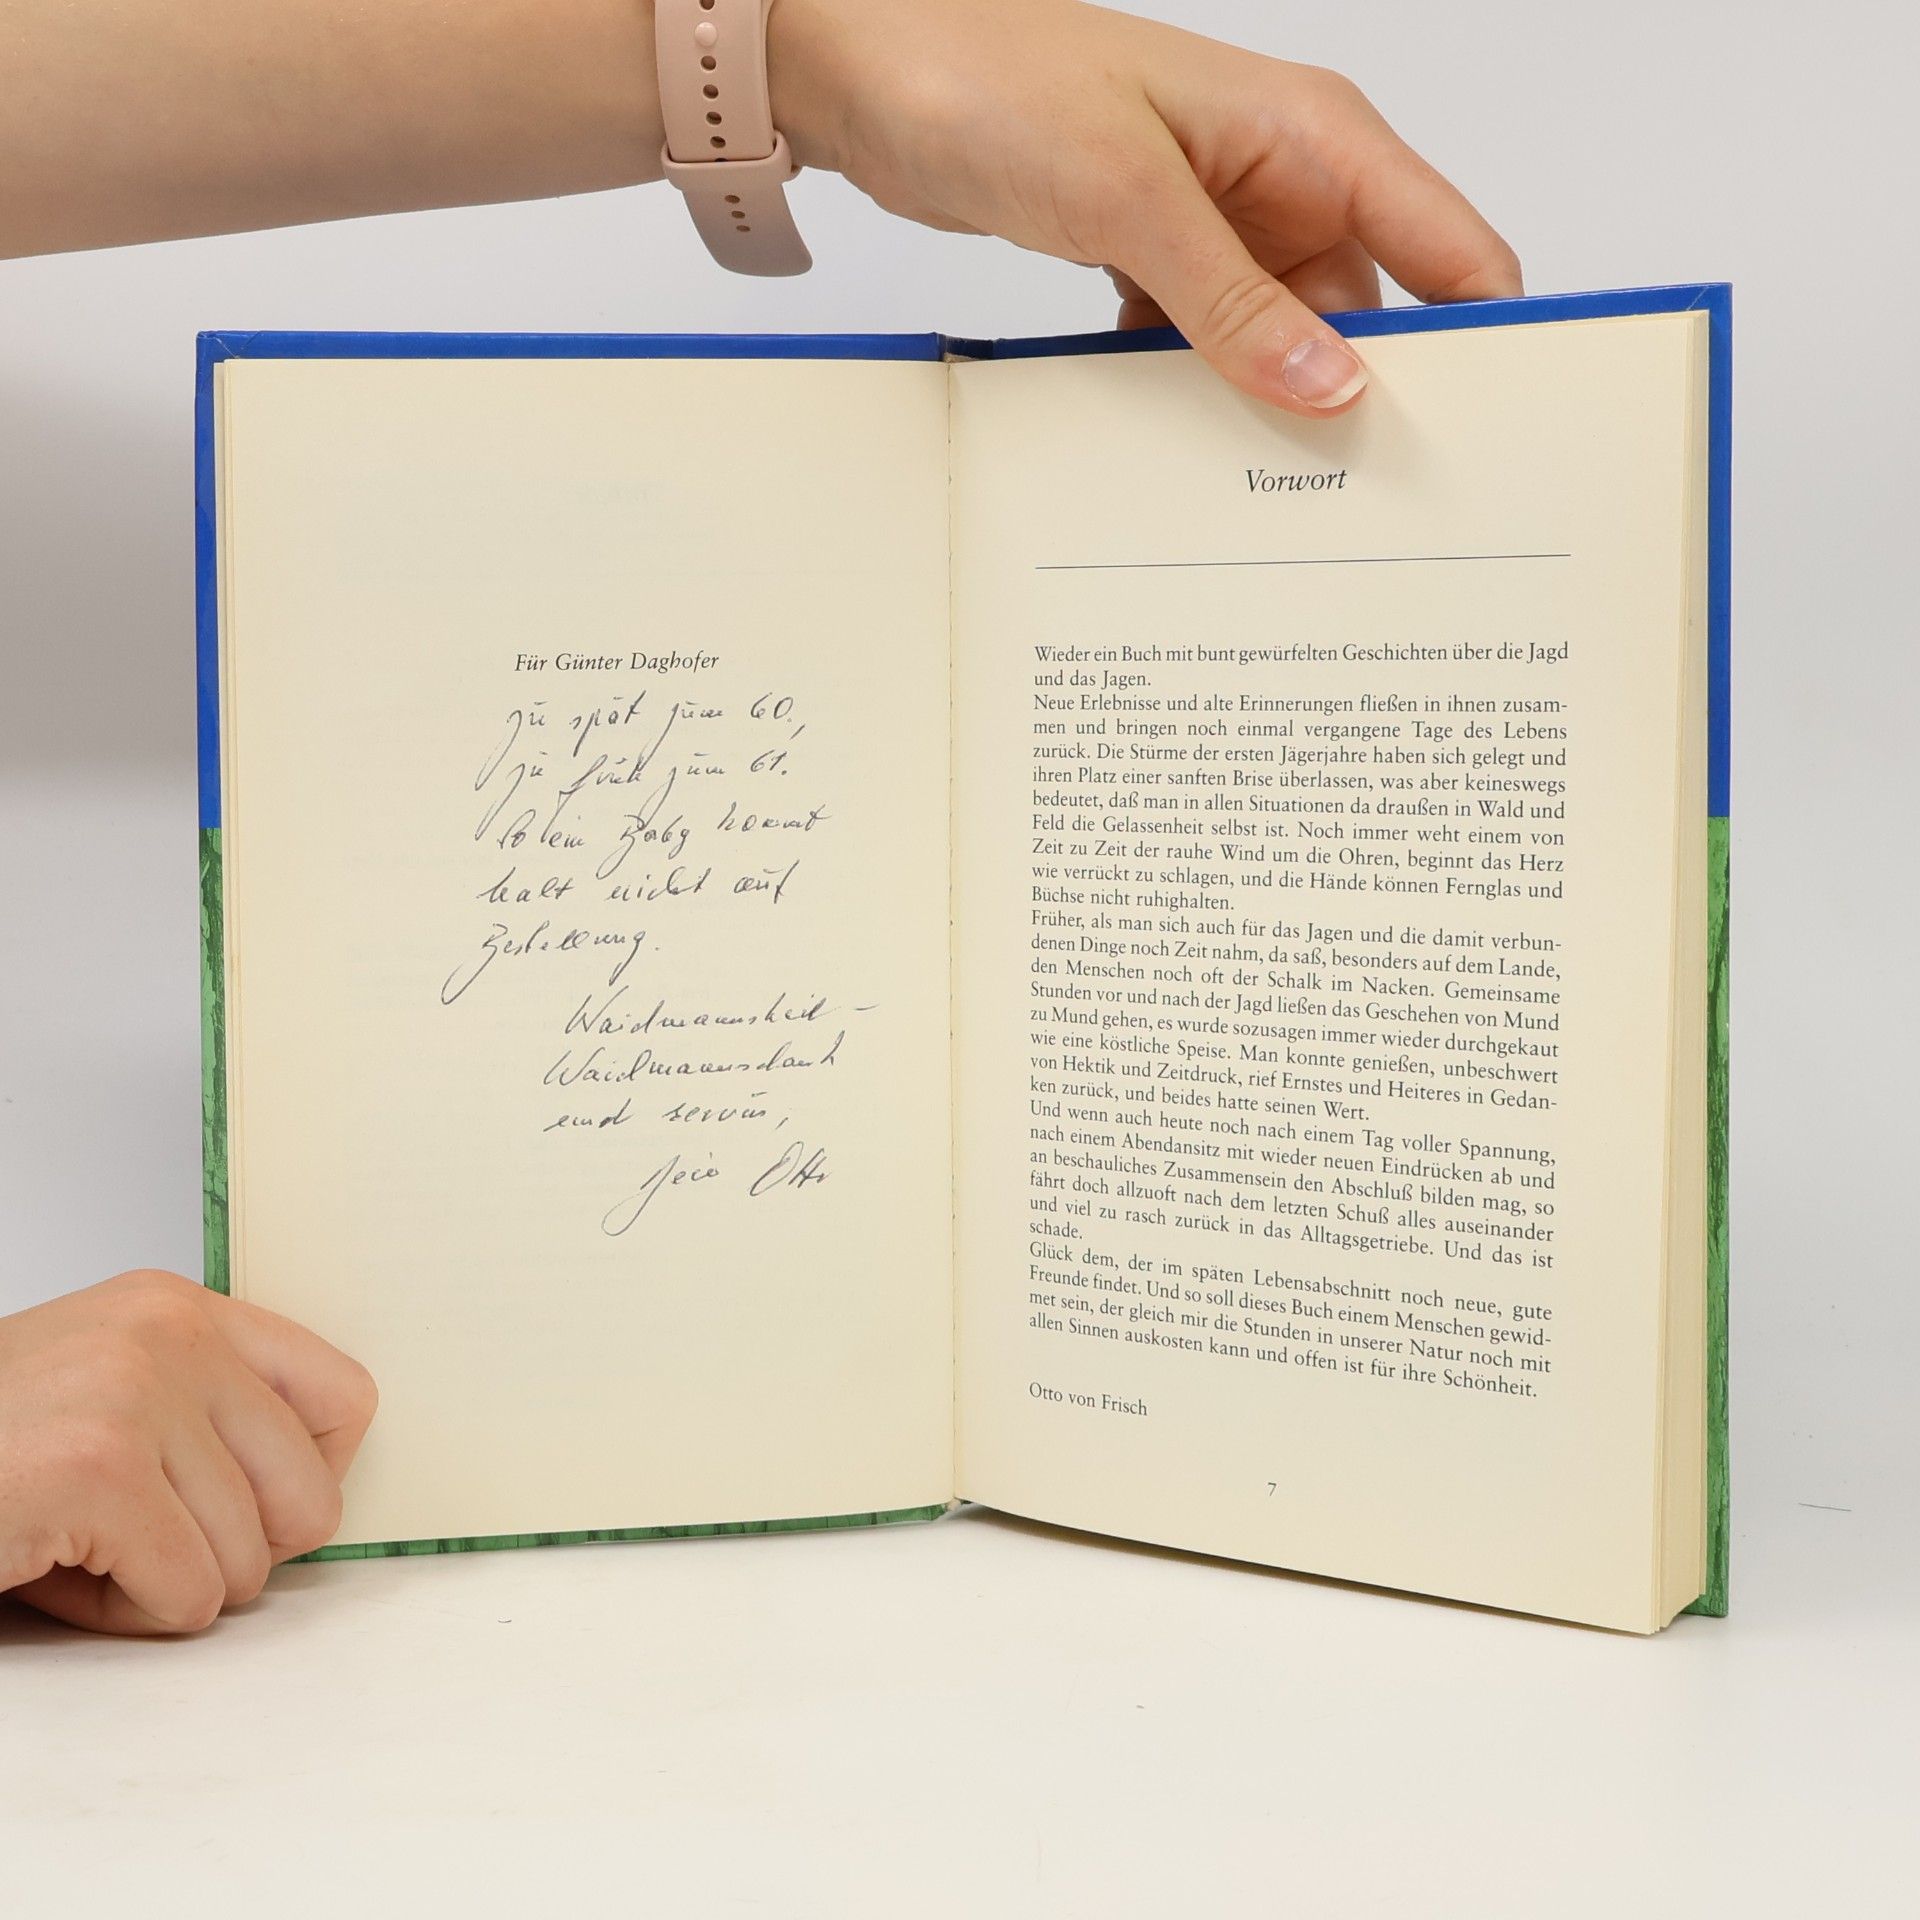 Für Günter Daghofer
zu spät zum 60.,
zu früh zum 61.
So ein Baby kommt
halt nicht auf
Bestellung.
Waidmannsheil –
Waidmannsdank
und servus,
Dein Otto
Vorwort
Wieder ein Buch mit bunt gewürfelten Geschichten über die Jagd
und das Jagen.
Neue Erlebnisse und alte Erinnerungen fließen in ihnen zusam-
men und bringen noch einmal vergangene Tage des Lebens
zurück. Die Stürme der ersten Jägerjahre haben sich gelegt und
ihren Platz einer sanften Brise überlassen, was aber keineswegs
bedeutet, daß man in allen Situationen da draußen in Wald und
Feld die Gelassenheit selbst ist. Noch immer weht einem von
Zeit zu Zeit der rauhe Wind um die Ohren, beginnt das Herz
wie verrückt zu schlagen, und die Hände können Fernglas und
Büchse nicht ruhighalten.
Früher, als man sich auch für das Jagen und die damit verbun-
denen Dinge noch Zeit nahm, da saß, besonders auf dem Lande,
den Menschen noch oft der Schalk im Nacken. Gemeinsame
Stunden vor und nach der Jagd ließen das Geschehen von Mund
zu Mund gehen, es wurde sozusagen immer wieder durchgekaut
wie eine köstliche Speise. Man konnte genießen, unbeschwert
von Hektik und Zeitdruck, rief Ernstes und Heiteres in Gedan-
ken zurück, und beides hatte seinen Wert.
Und wenn auch heute noch nach einem Tag voller Spannung,
nach einem Abendansitz mit wieder neuen Eindrücken ab und
an beschauliches Zusammensein den Abschluß bilden mag, so
fährt doch allzuoft nach dem letzten Schuß alles auseinander
und viel zu rasch zurück in das Alltagsgetriebe. Und das ist
schade.
Glück dem, der im späten Lebensabschnitt noch neue, gute
Freunde findet. Und so soll dieses Buch einem Menschen gewid-
met sein, der gleich mir die Stunden in unserer Natur noch mit
allen Sinnen auskosten kann und offen ist für ihre Schönheit.
Otto von Frisch
7